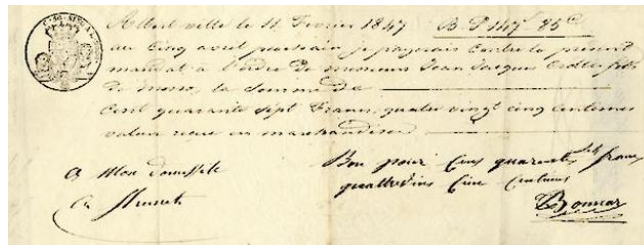 Albertville le 11 Février 1847 B. P 147 85 c
au cinq avril prochain je payerais contre le present
mandat à l'ordre de monsieur Jean Jacques fils
de la somme de
Cent quarante Sept Francs quatre vingt cinq centimes
valeur reçue en marchandises
Bon pour Cent quarente sept francs
a Mon domicile
quattrevins Cinc Centimes
a
Bonnar